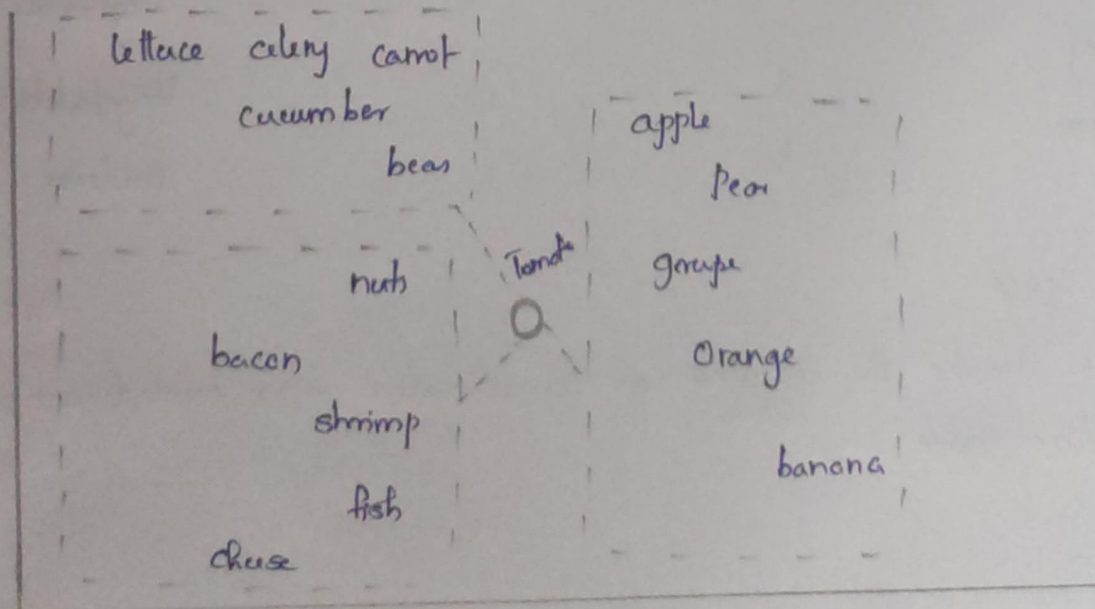 lettuce celery carrot
cucumber
bean
nuts
bacon
shrimp
fish
cheese
Tomato
apple
Pear
grape
Orange
banana